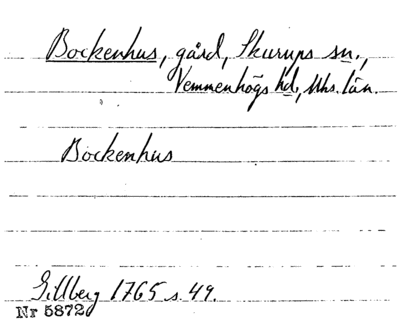 Bockenhus, gård, Skurups sn.,
Vemmenhögs hd., Mhs. län.
Bockenhus
Gillberg 1765 s. 49.
Nr 5872